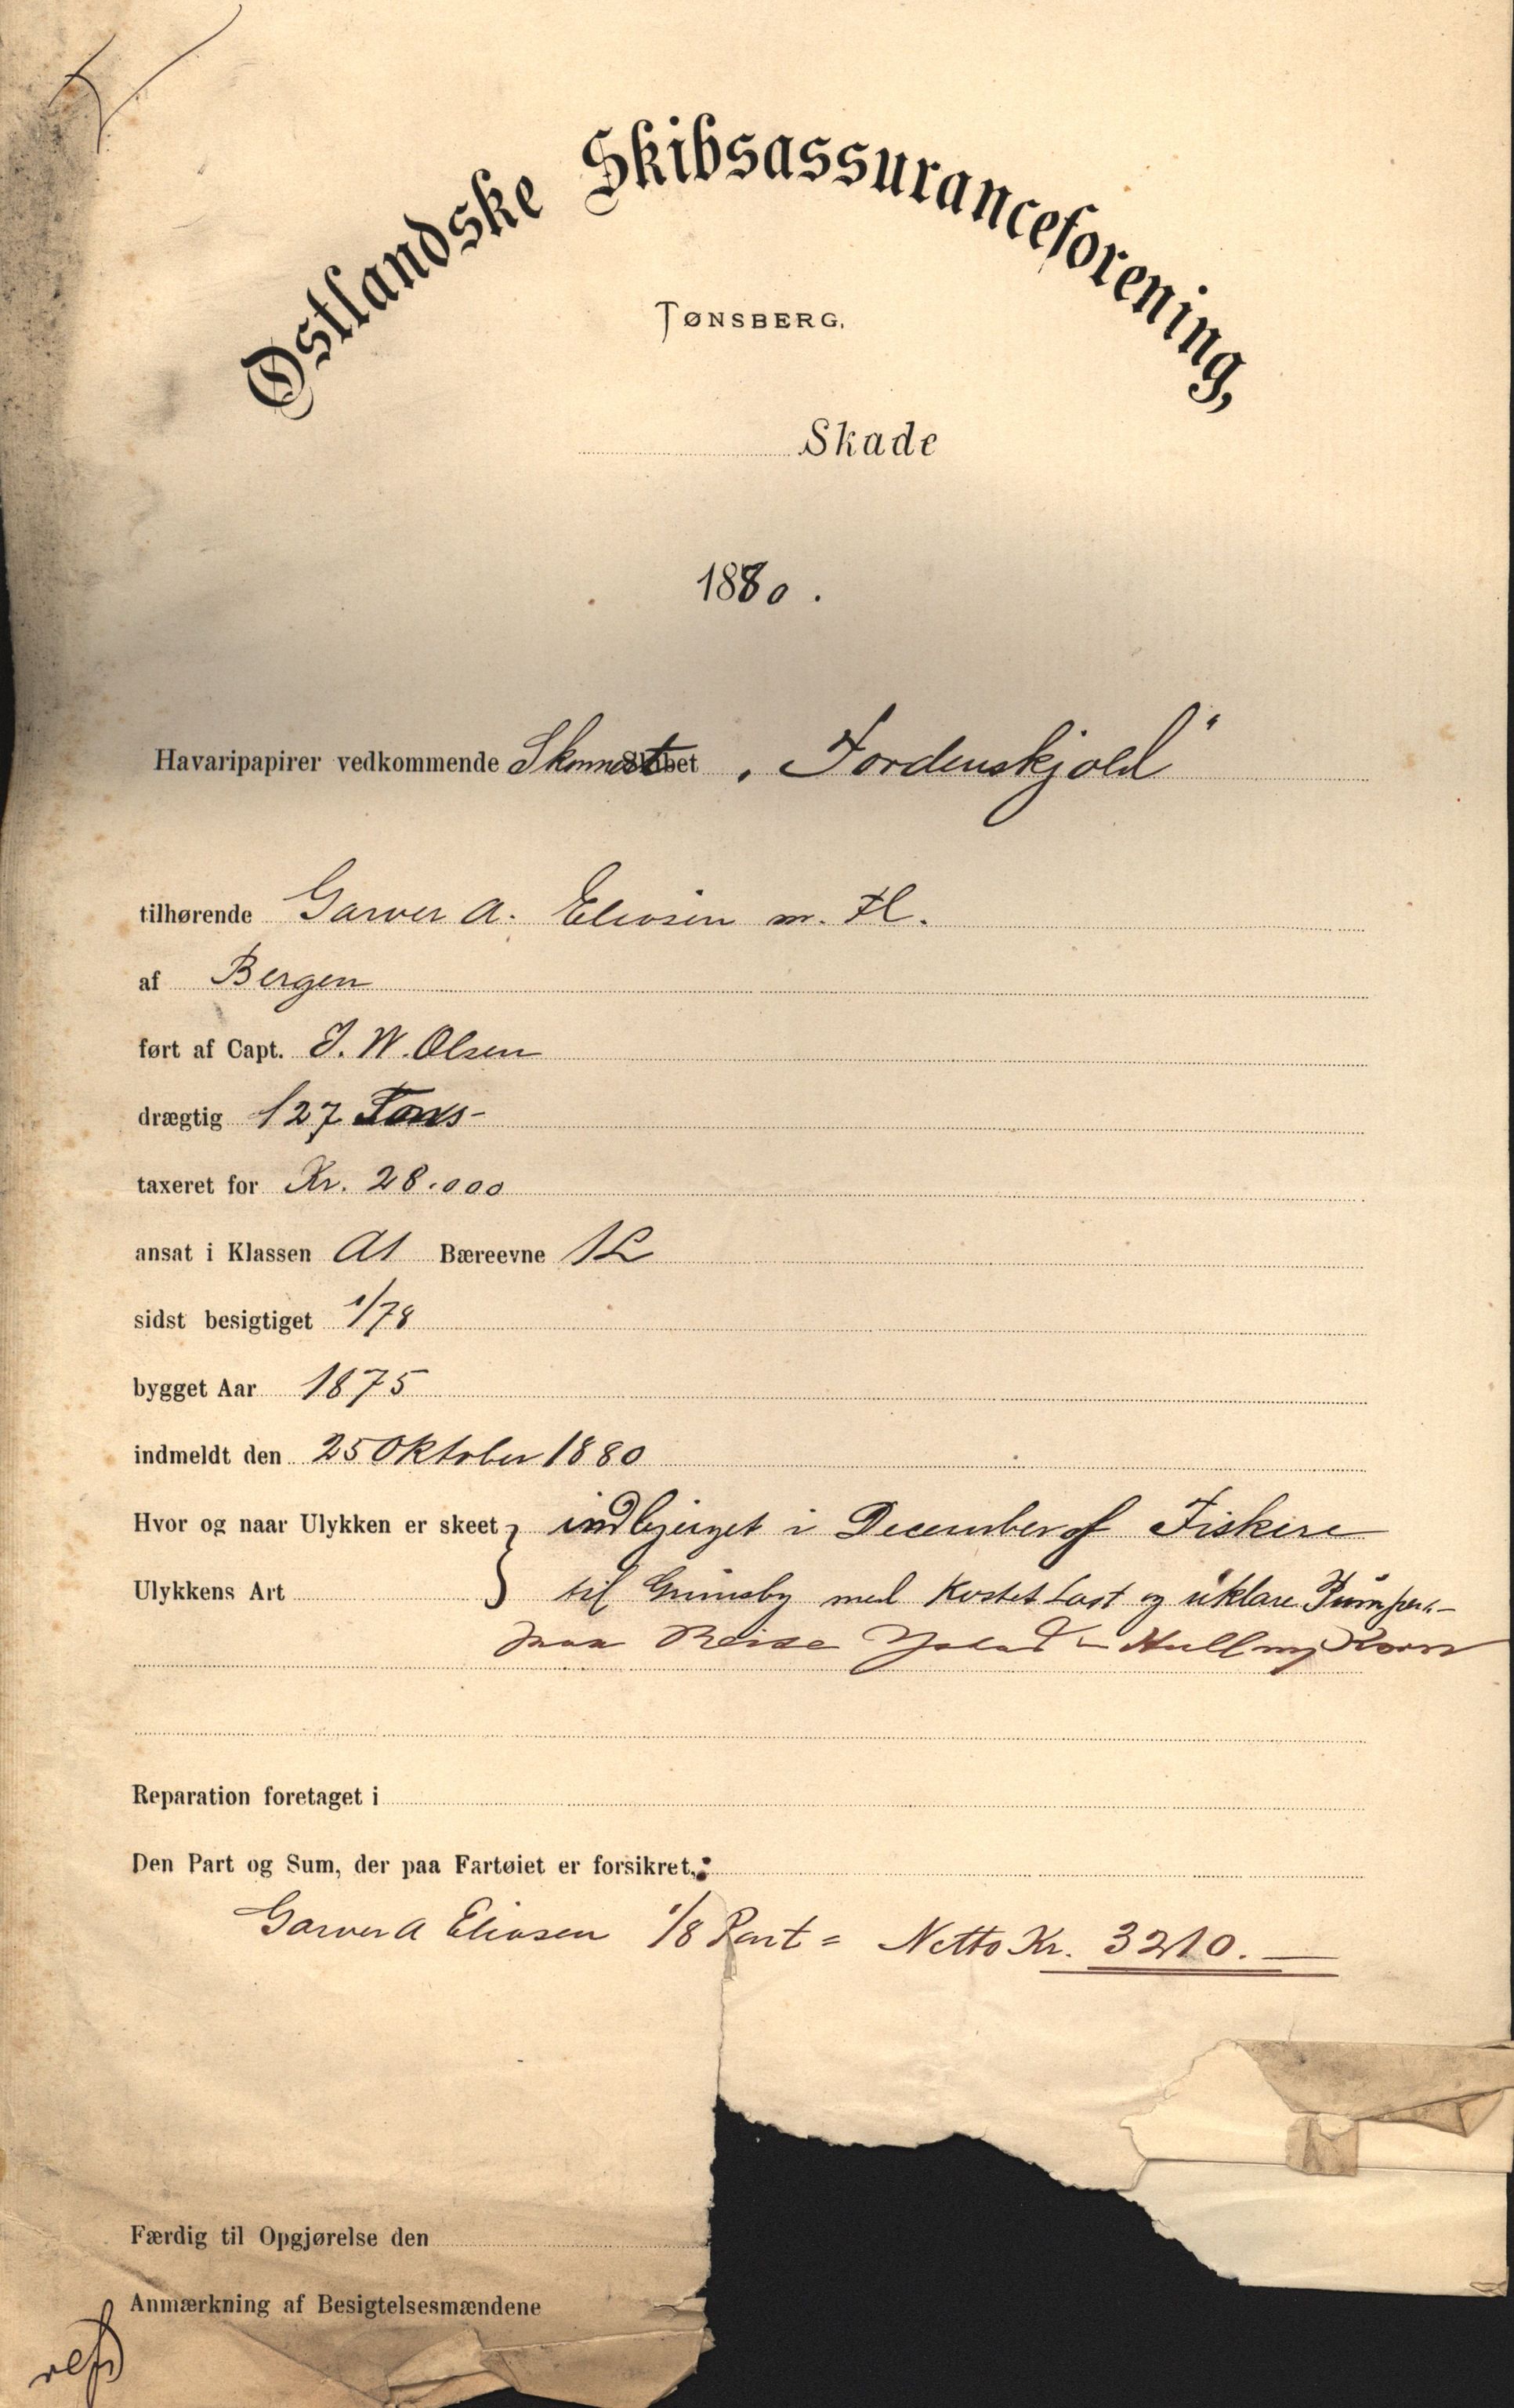 Østlandske Skibsassuranceforening,
TØNSBERG.
Skade
1880.
Havaripapirer vedkommende Skibet „Tordenskjold“
tilhørende Garver A. Eliasen m. Fl.
af Bergen
ført af Capt. J. W. Olsen
drægtig 127 Tons-
taxeret for Kr. 28.000
ansat i Klassen A1 Bæreevne
sidst besigtiget 1/78
bygget Aar 1875
indmeldt den 25 Oktober 1880
Hvor og naar Ulykken er skeet } indbjerget i December af Fiskere
Ulykkens Art til Grimsby med Kastet Last og uklare Pumper.-
paa Reise Ystad - Hull m/ Korn
Reparation foretaget i
Den Part og Sum, der paa Fartøiet er forsikret.:
Garver A Eliasen 1/8 Part = Netto Kr. 3210.—
Færdig til Opgjørelse den
Anmærkning af Besigtelsesmændene